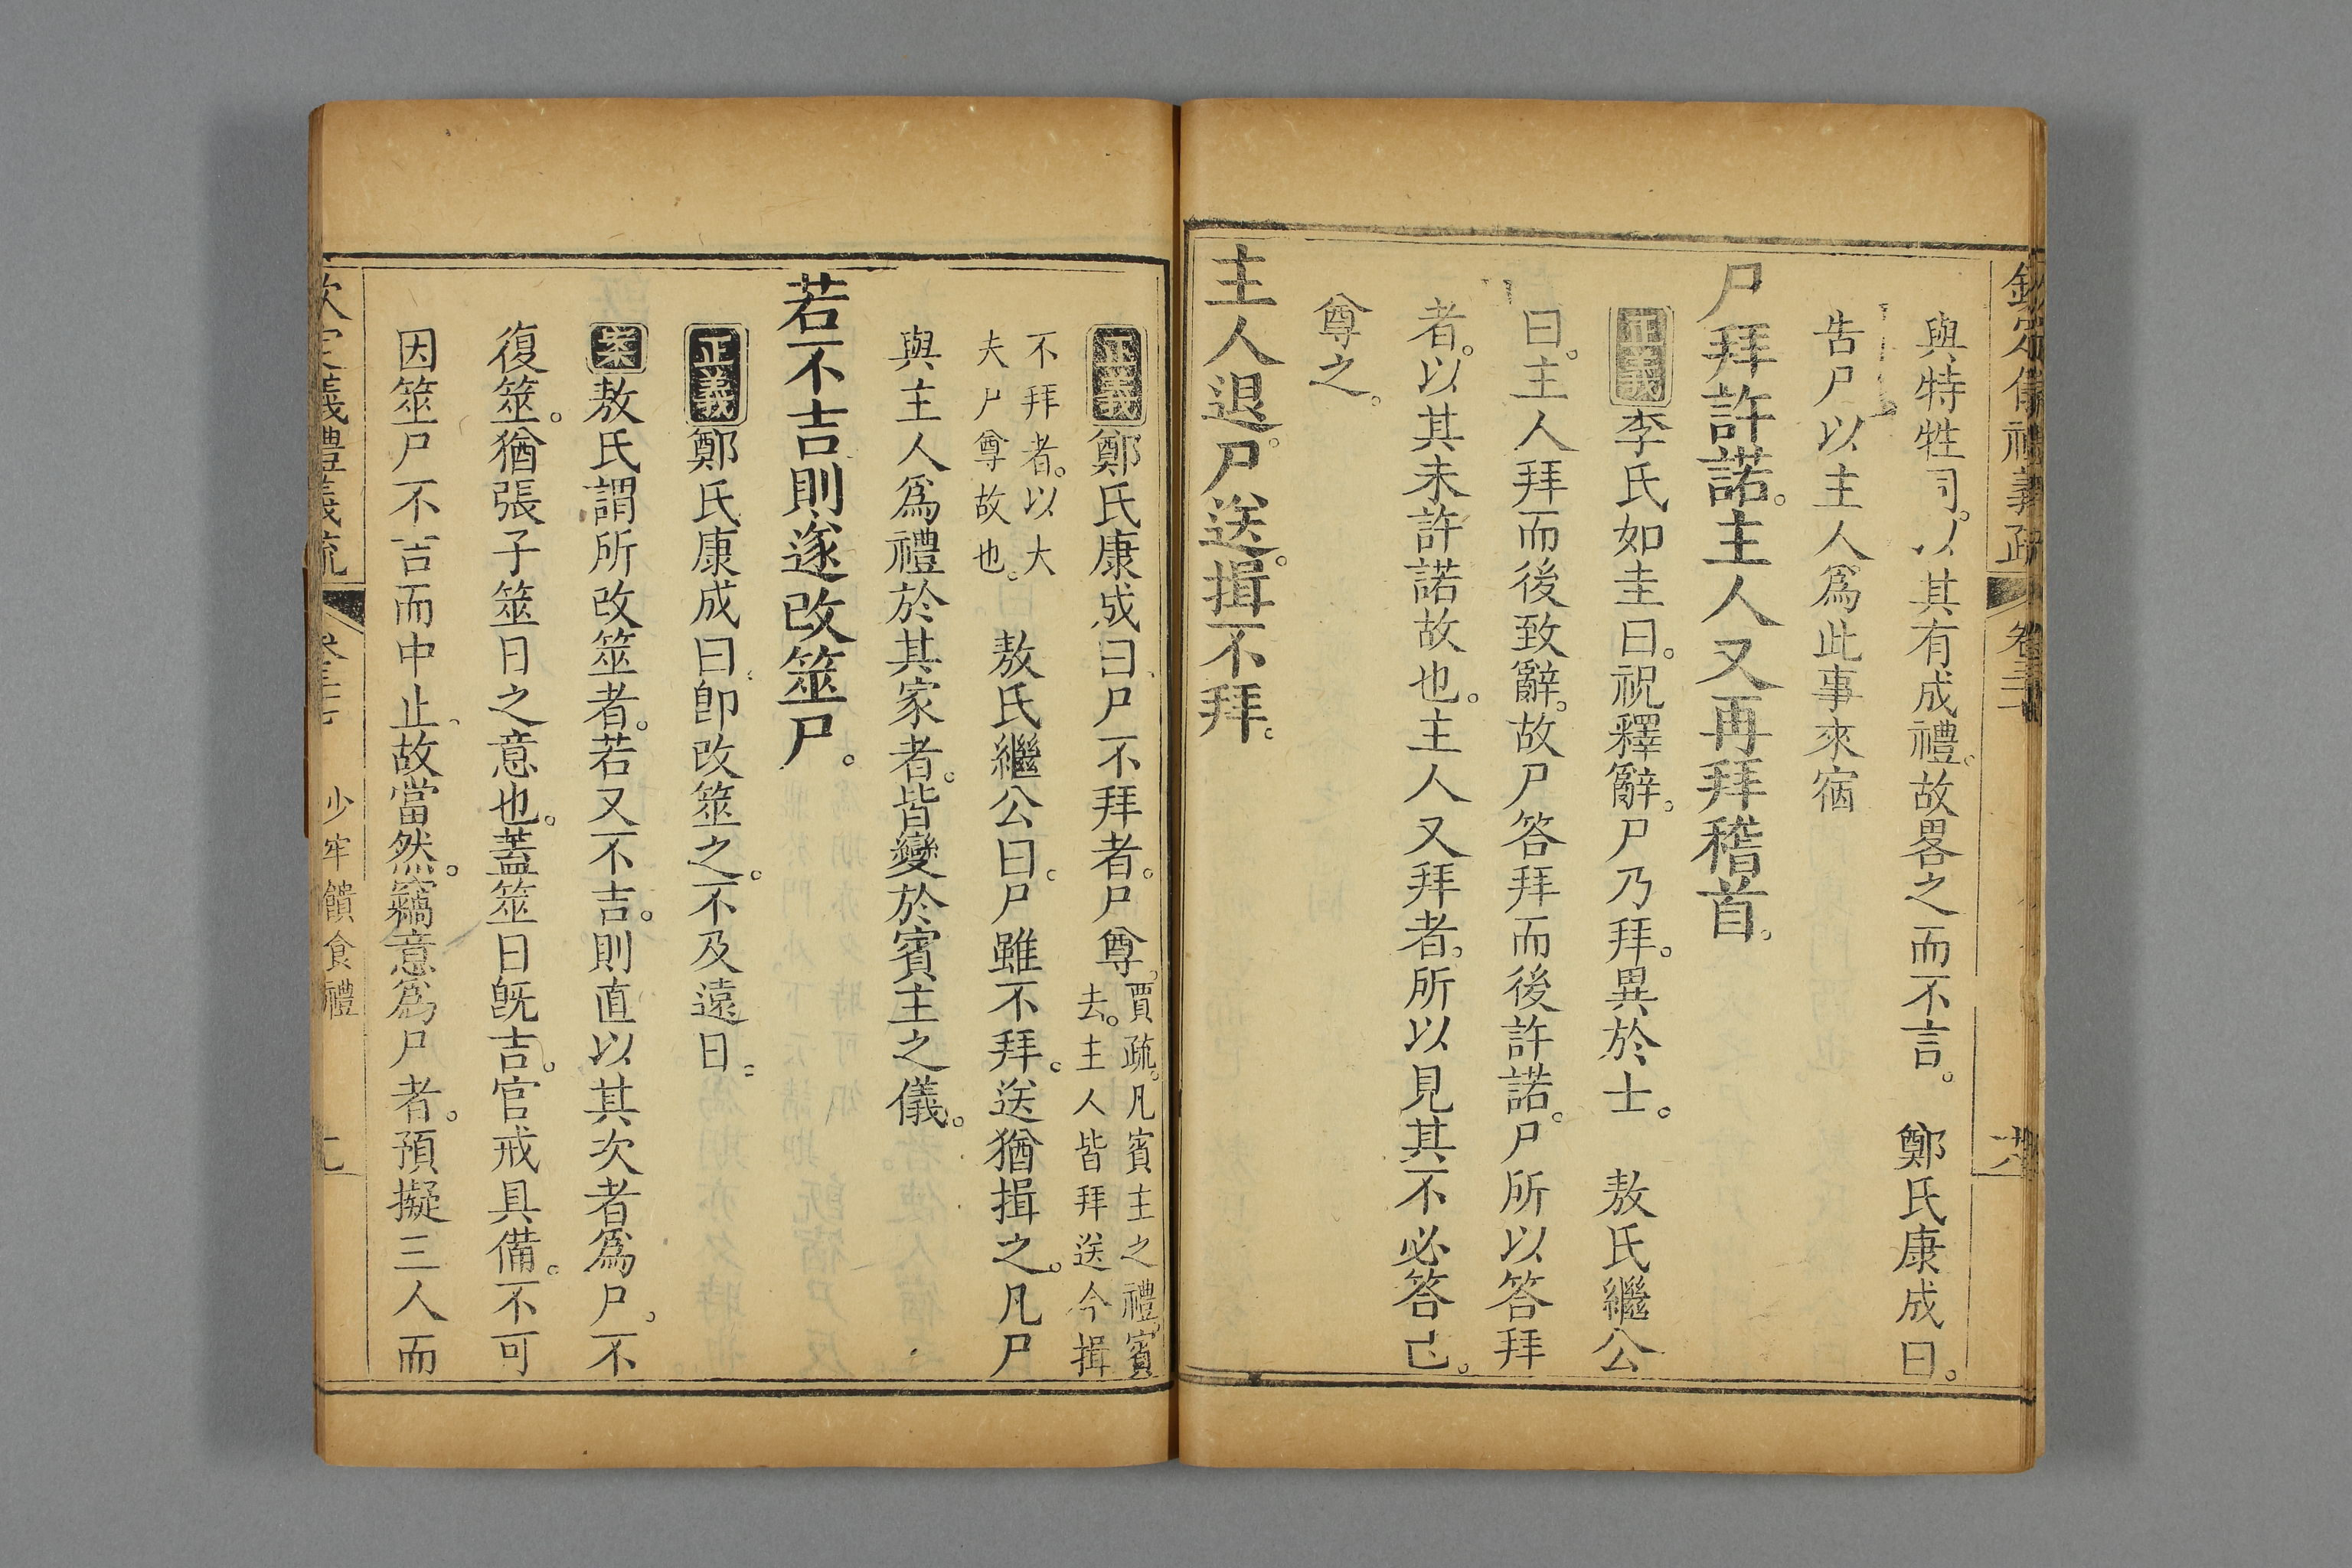 欽定儀禮義疏 卷三十 十六
與特牲同。以其有成禮。故畧之而不言。 鄭氏康成曰。
告尸以主人爲此事來宿
尸拜許諾。主人又再拜稽首。
正義 李氏如圭曰。祝釋辭。尸乃拜。異於士。 敖氏繼公
曰。主人拜而後致辭。故尸答拜而後許諾。尸所以答拜
者。以其未許諾故也。主人又拜者。所以見其不必答己。
尊之。
主人退。尸送。揖不拜。
正義 鄭氏康成曰、尸不拜者。尸尊。賈疏。凡賓主之禮。賓
去。主人皆拜送今揖
不拜者。以大
夫尸尊故也。 敖氏繼公曰。尸雖不拜。送猶揖之。凡尸
與主人爲禮於其家者。皆變於賓主之儀。
若不吉則遂改筮尸。
正義 鄭氏康成曰、卽改筮之。不及遠日。
案 敖氏謂所改筮者。若又不吉。則直以其次者爲尸。不
復筮。猶張子筮日之意也。蓋筮日旣吉。官戒具備。不可
因筮尸不吉而中止、故當然。竊意爲尸者。預擬三人而
欽定義禮義疏 少牢饋食禮